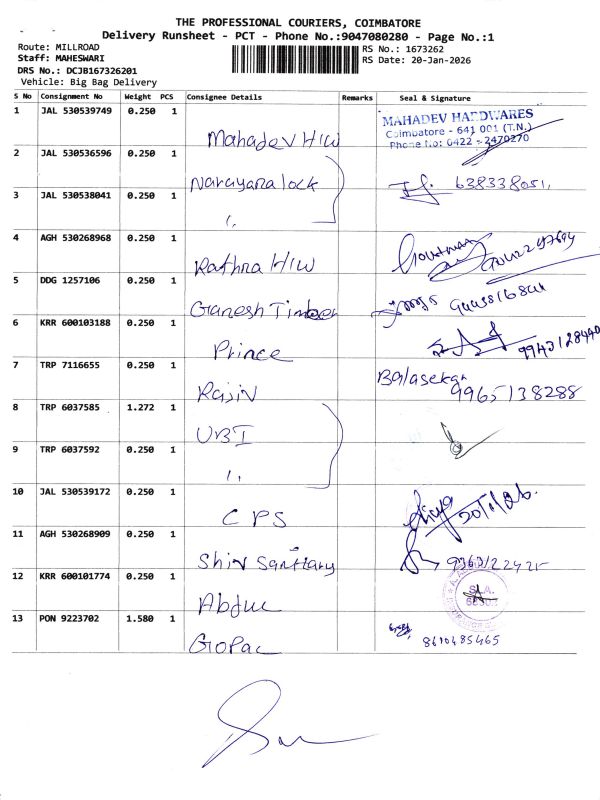 THE PROFESSIONAL COURIERS, COIMBATORE
Delivery Runsheet - PCT - Phone No.:9047080280 - Page No.:1
Route: MILLROAD
Staff: MAHESWARI
DRS No.: DCJB167326201
Vehicle: Big Bag Delivery
RS No.: 1673262
RS Date: 20-Jan-2026
S No Consignment No Weight PCS Consignee Details Remarks Seal & Signature
1 JAL 530539749 0.250 1 Mahadev H/W
MAHADEV HARDWARES
Coimbatore - 641 001 (T.N.)
Phone No: 0422 - 2470270
2 JAL 530536596 0.250 1 Narayana lock
3 JAL 530538041 0.250 1 "
4 AGH 530268968 0.250 1 Rathna H/W
5 DDG 1257106 0.250 1 Ganesh Timber
6 KRR 600103188 0.250 1 Prince
7 TRP 7116655 0.250 1 Rajiv Balasekar 9965138288
8 TRP 6037585 1.272 1 UBI
9 TRP 6037592 0.250 1 "
10 JAL 530539172 0.250 1 CPS
11 AGH 530268909 0.250 1 Shiv Sanitary
12 KRR 600101774 0.250 1 Abdul
13 PON 9223702 1.580 1 Gopal 8610485465